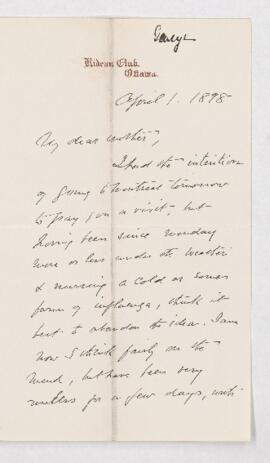 George
Rideau Club,
Ottawa.
April 1. 1898
My dear mother,
I had the intention
of going to Montreal tomorrow
to pay you a visit, but
having been since Monday
more or less under the weather
& nursing a cold or some
form of influenza, think it
best to abandon the idea. I am
now I think fairly on the
mend, but have been very
useless for a few days, with